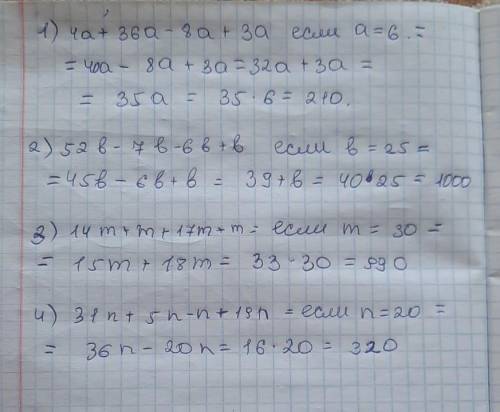 1) 4a + 36a - 8a + 3a если a = 6 . =
= 40a - 8a + 3a = 32a + 3a =
= 35a = 35 · 6 = 210.
2) 52в - 7в - 6в + в если в = 25 =
= 45в - 6в + в = 39 + в = 40 · 25 = 1000
3) 14m + m + 17m + m = если m = 30 =
= 15m + 18m = 33 · 30 = 990
4) 31n + 5n - n + 19n = если n = 20 =
= 36n - 20n = 16 · 20 = 320